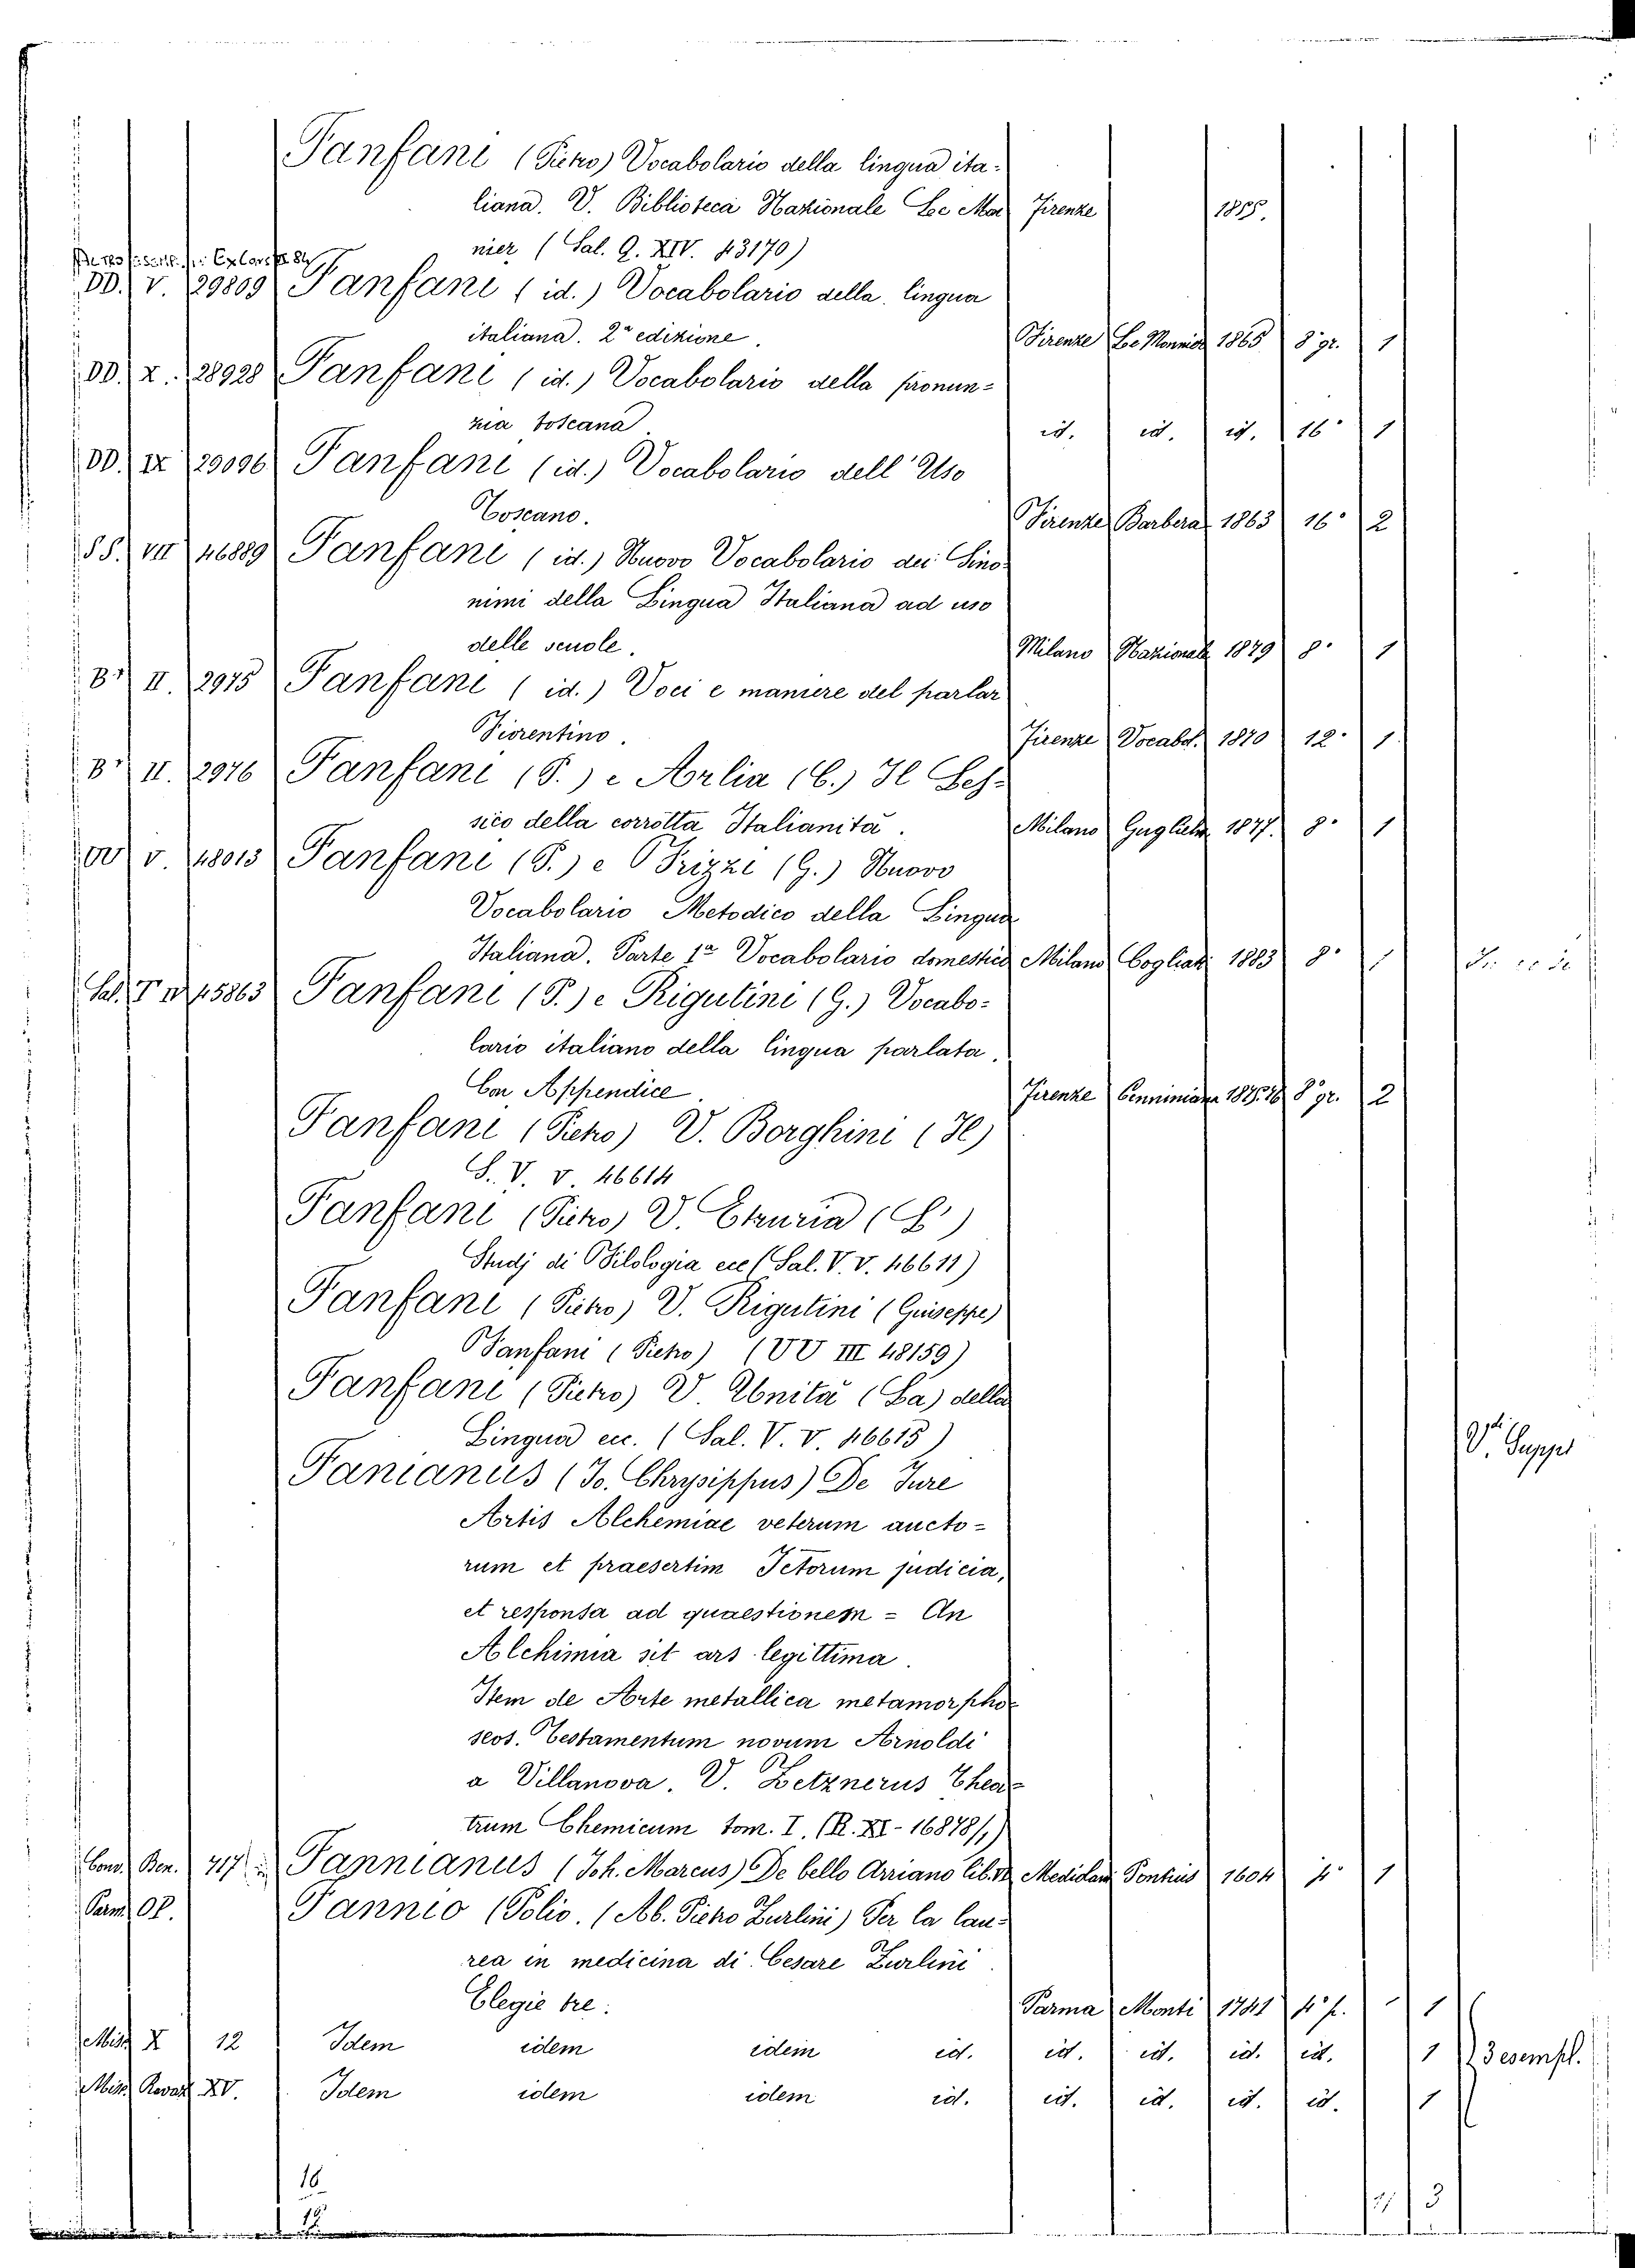 Fanfani (Pietro) Vocabolario della lingua ita-
liana. V. Biblioteca Nazionale Le Mon Firenze 1855.
nier (Sal. Q. XIV. 43170)
DD. V. 29809 Fanfani (id.) Vocabolario della lingua
italiana. 2ª edizione. Firenze Le Monnier 1865 8° gr. 1
DD. X. 28928 Fanfani (id.) Vocabolario della pronun-
zia toscana id. id. id. 16° 1
DD. IX 29096 Fanfani (id.) Vocabolario dell' Uso
Toscano. Firenze Barbera 1863 16° 2
SS. VII 46889 Fanfani (id.) Nuovo Vocabolario dei Sino-
nimi della Lingua Italiana ad uso
delle scuole. Milano Nazionale 1879 8° 1
Bª II. 2975 Fanfani (id.) Voci e maniere del parlar
Fiorentino. Firenze Vocabol. 1870 12° 1
Bª II. 2976 Fanfani (P.) e Arlia (C.) Il Les-
sico della corrotta Italianità. Milano Guglielm. 1877. 8° 1
VV V. 48013 Fanfani (P.) e Frizzi (G.) Nuovo
Vocabolario Metodico della Lingua
Italiana. Parte 1ª Vocabolario domestico Milano Cogliati 1883 8° 1
Sal. T IV 45863 Fanfani (P.) e Rigutini (G.) Vocabo-
lario italiano della lingua parlata.
Con Appendice. Firenze Cenniniana 1875.76 8° gr. 2
Fanfani (Pietro) V. Borghini (Il)
S. V. V. 46614
Fanfani (Pietro) V. Etruria (L')
Studj di Filologia ecc (Sal. V. V. 46611)
Fanfani (Pietro) V. Rigutini (Giuseppe)
Fanfani (Pietro) (VV III 48159)
Fanfani (Pietro) V. Unità (La) della
Lingua ecc. (Sal. V. V. 46615)
V. Supp
Fanianus (Jo. Chrysippus) De Jure
Artis Alchemiae veterum aucto-
rum et praesertim Jctorum judicia,
et responsa ad quaestionem = An
Alchimia sit ars legittima.
Item de Arte metallica metamorpho-
seos. Testamentum novum Arnoldi
a Villanova. V. Zetznerus Thea-
trum Chemicum tom. I. (R. XI-16878/1)
Cons. Ben. 717 Fannianus (Joh. Marcus) De bello Arriano lib. Mediolani Pontius 1604 4° 1
Parm. Op. Fannio (Polio. (Ab. Pietro Zurlini) Per la lau-
rea in medicina di Cesare Zurlini
Elegie tre. Parma Monti 1741 4° p. 1
Misc X 12 Idem idem idem id. id. id. id. id. 1 3 esempl.
Misc Revaz XV. Idem idem idem id. id. id. id. id. 1
16
3